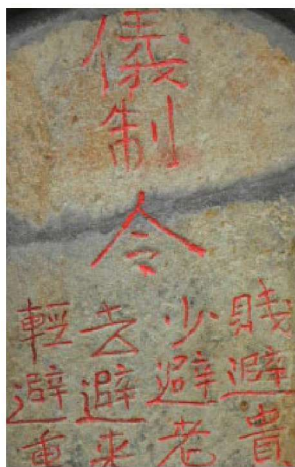 儀制令
賤避貴
少避老
去避来
輕避重